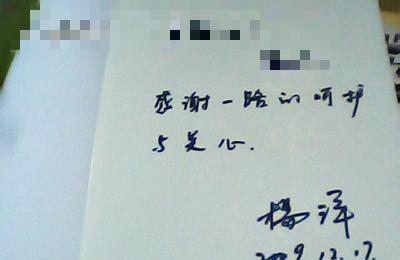 感谢一路的呵护
与关心.
楊洋
2009.12.17